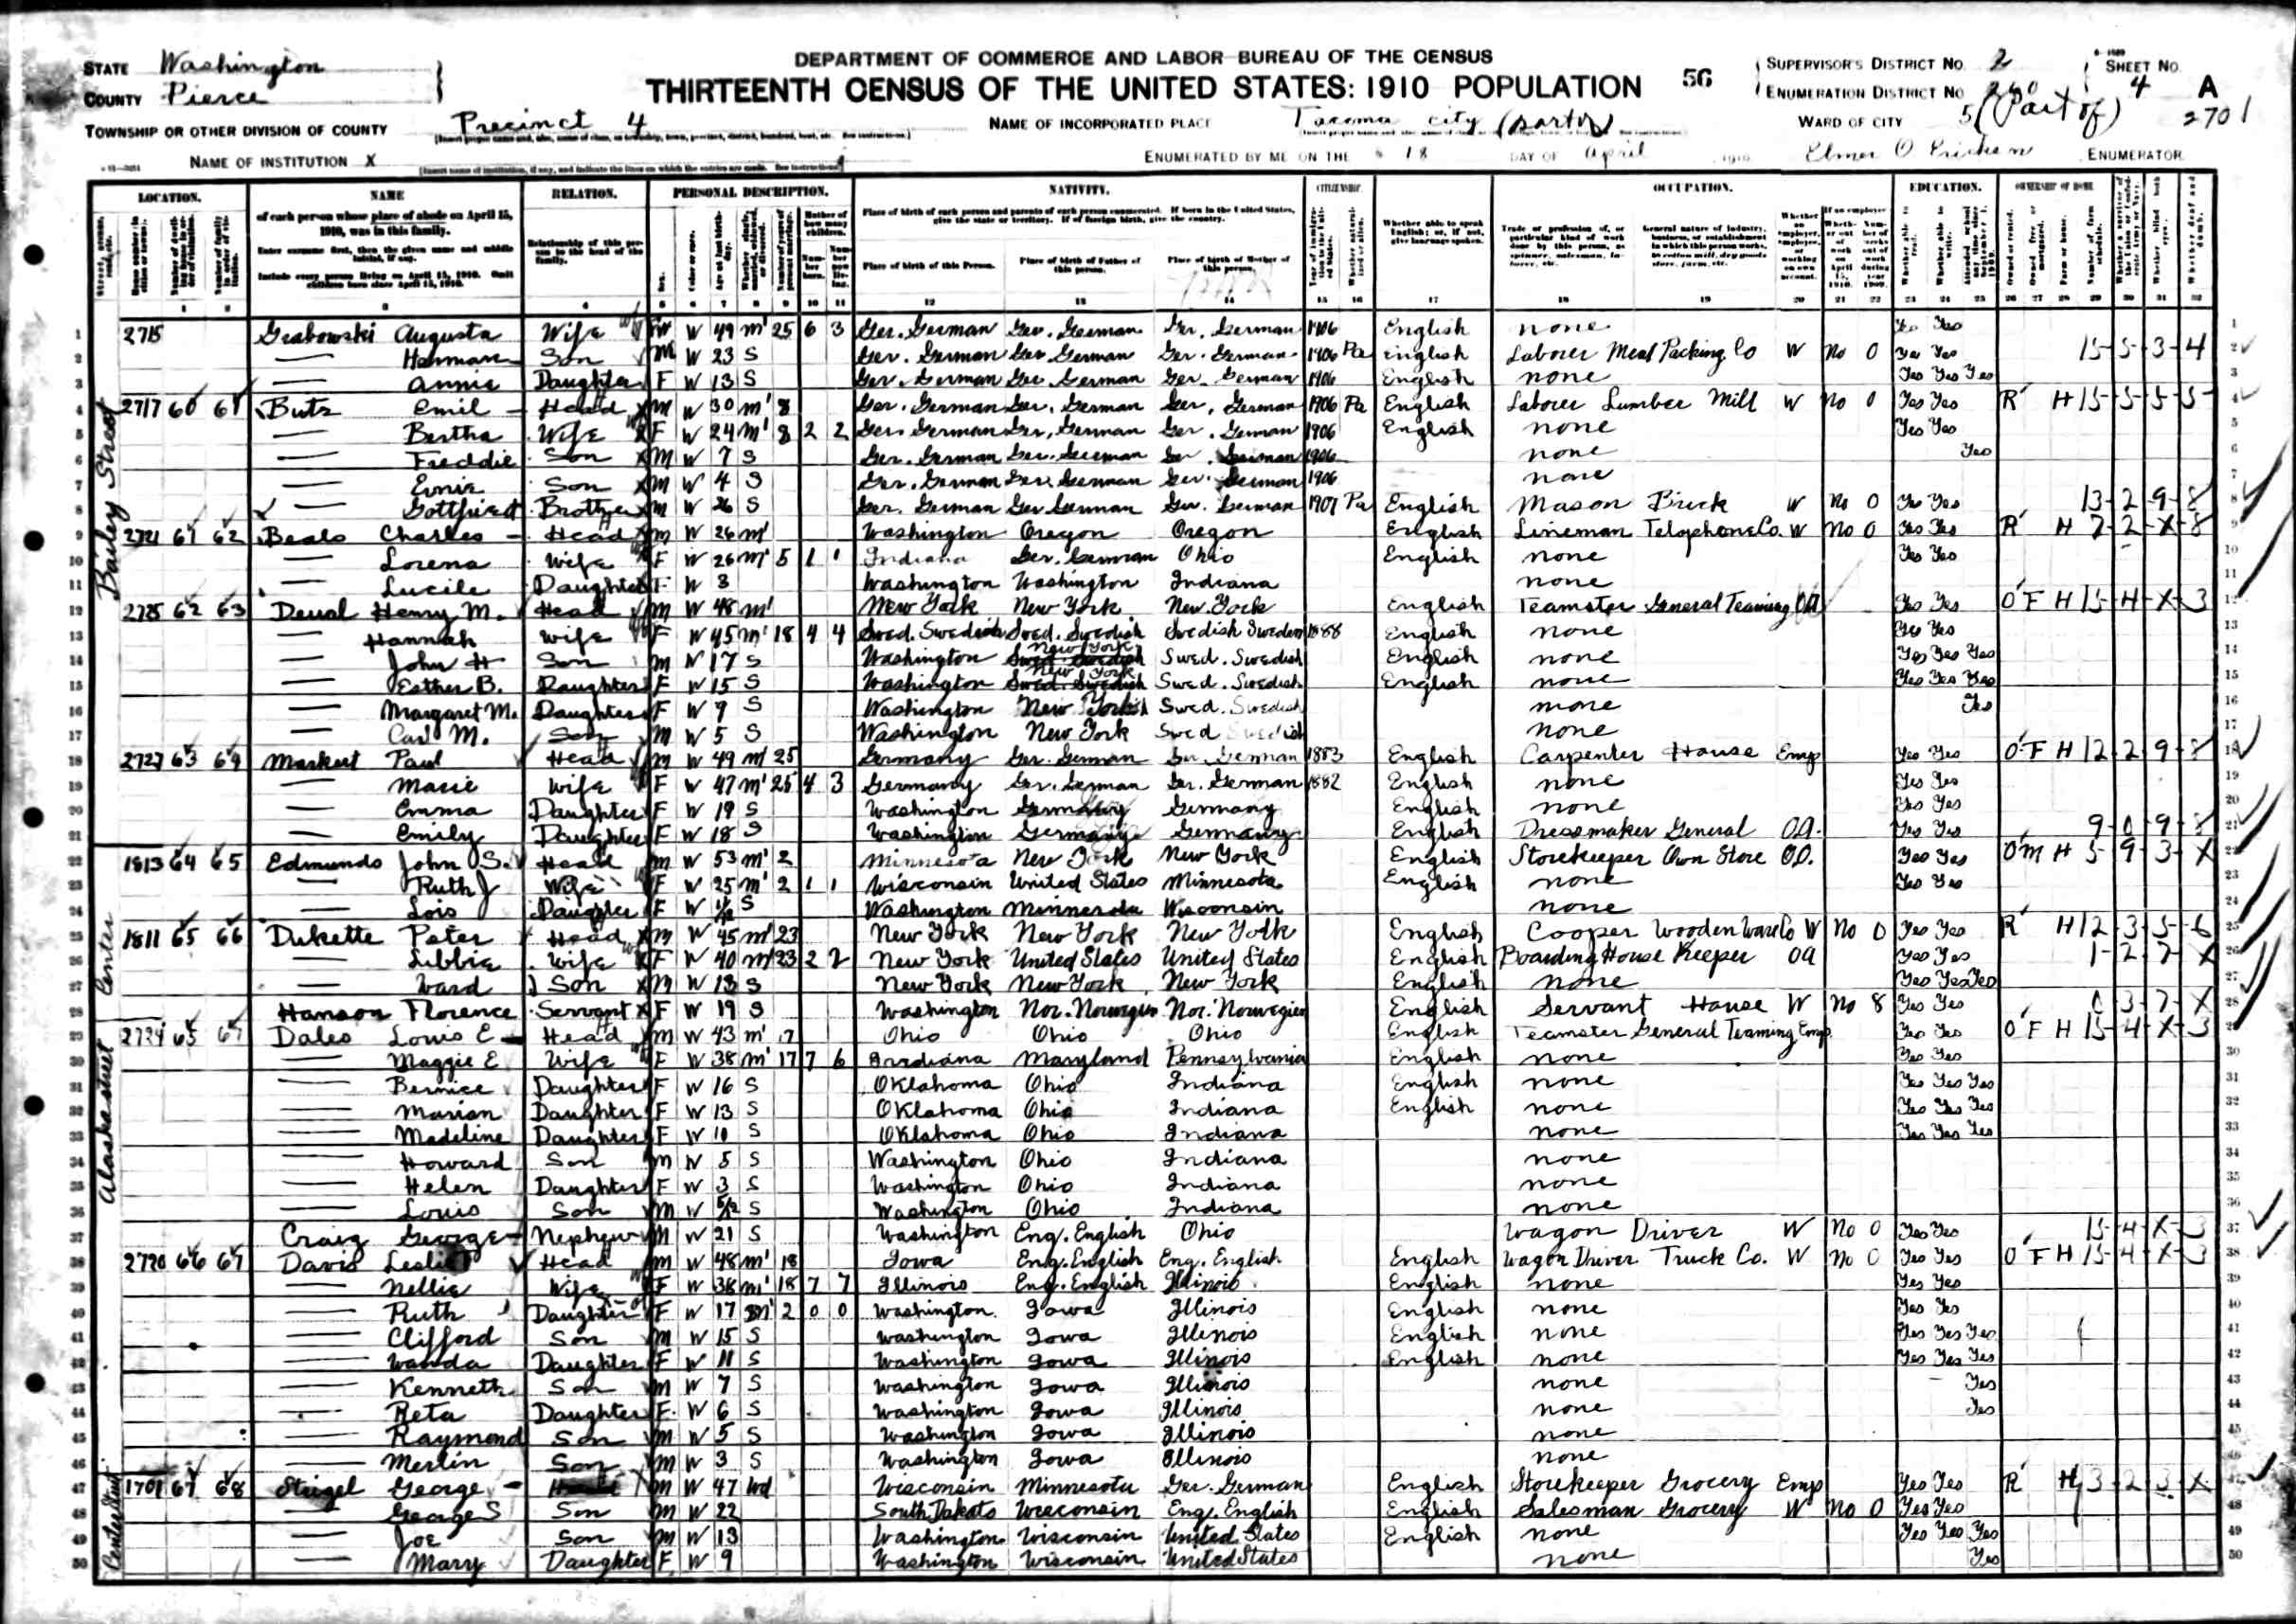 DEPARTMENT OF COMMERCE AND LABOR-BUREAU OF THE CENSUS
THIRTEENTH CENSUS OF THE UNITED STATES: 1910 POPULATION
56
STATE Washington
COUNTY Pierce
TOWNSHIP OR OTHER DIVISION OF COUNTY Precinct 4
NAME OF INSTITUTION X
NAME OF INCORPORATED PLACE Tacoma city (part of)
ENUMERATED BY ME ON THE 18 DAY OF April 1910
SUPERVISOR'S DISTRICT NO. 2
ENUMERATION DISTRICT NO.
SHEET NO. 4 A
WARD OF CITY 5 (Part of) 2701
Elmer O ENUMERATOR
LOCATION. NAME RELATION. PERSONAL DESCRIPTION. NATIVITY. CITIZENSHIP. OCCUPATION. EDUCATION. OWNERSHIP OF HOME.
of each person whose place of abode on April 15, 1910, was in this family.
Enter surname first, then the given name and middle initial, if any.
Include every person living on April 15, 1910. Omit children born since April 15, 1910.
Relationship of this person to the head of the family.
Place of birth of each person and parents of each person enumerated. If born in the United States, give the state or territory. If of foreign birth, give the country.
Place of birth of this Person. Place of birth of Father of this person. Place of birth of Mother of this person.
Whether able to speak English; or, if not, give language spoken.
Bailey Street
1 2715 Grabowski Augusta Wife W 49 M1 25 6 3 Ger. German Ger. German Ger. German 1906 English none Yes Yes
2 Herman Son M W 23 S Ger. German Ger German Ger. German 1906 Pa English Laborer Meat Packing Co W No 0 Yes Yes 15-5-3-4
3 Annie Daughter F W 13 S Ger. German Ger. German Ger. German 1906 English none Yes Yes Yes
4 2717 60 61 Butz Emil Head M W 30 M1 8 Ger. German Ger. German Ger. German 1906 Pa English Laborer Lumber Mill W No 0 Yes Yes R H 15-5-5-5
5 Bertha Wife F W 24 M1 8 2 2 Ger. German Ger. German Ger. German 1906 English none Yes Yes
6 Freddie Son M W 7 S Ger. German Ger. German Ger. German 1906 none Yes
7 Ernie Son M W 4 S Ger. German Ger. German Ger. German 1906 none
8 Gottfried Brother M W 26 S Ger. German Ger German Ger. German 1907 Pa English Mason Brick W No 0 Yes Yes 13-2-9-8
9 2721 61 62 Beals Charles Head M W 26 M1 Washington Oregon Oregon English Lineman Telephone Co. W No 0 Yes Yes R H 7-2-X-8
10 Lorena Wife F W 26 M1 5 1 1 Indiana Ger. German Ohio English none Yes Yes
11 Lucile Daughter F W 3 Washington Washington Indiana none
12 2725 62 63 Deual Henry M. Head M W 48 M1 New York New York New York English Teamster General Teaming OA Yes Yes O F H 15-4-X-3
13 Hannah Wife F W 45 M1 18 4 4 Swed. Swedish Swed. Swedish Swedish Sweden 1888 English none Yes Yes
14 John H Son M W 17 S Washington New York Swed. Swedish English none Yes Yes Yes
15 Esther B. Daughter F W 15 S Washington New York Swed. Swedish English none Yes Yes Yes
16 Margaret M. Daughter F W 9 S Washington New York Swed. Swedish none Yes
17 Carl M. Son M W 5 S Washington New York Swed Swedish none
18 2727 63 64 Markert Paul Head M W 49 M1 25 Germany Ger. German Ger. German 1883 English Carpenter House Emp Yes Yes O F H 12-2-9-8
19 Marie Wife F W 47 M1 25 4 3 Germany Ger. German Ger. German 1882 English none Yes Yes
20 Emma Daughter F W 19 S Washington Germany Germany English none Yes Yes
21 Emily Daughter F W 18 S Washington Germany Germany English Dressmaker General O.A. Yes Yes 9-0-9-8
Center
22 1813 64 65 Edmunds John S. Head M W 53 M1 2 Minnesota New York New York English Storekeeper Own Store O.A. Yes Yes O M H 5-9-3-X
23 Ruth J Wife F W 25 M1 2 1 1 Wisconsin United States Minnesota English none Yes Yes
24 Lois Daughter F W S Washington Minnesota Wisconsin none
25 1811 65 66 Dukette Peter Head M W 45 M1 23 New York New York New York English Cooper Wooden Ware Co W No 0 Yes Yes R H 12-3-5-6
26 Libbie Wife F W 40 M1 23 2 2 New York United States United States English Boarding House Keeper OA Yes Yes 1-2-7-X
27 Ward Son M W 13 S New York New York New York English none Yes Yes Yes
28 Hanson Florence Servant F W 19 S Washington Nor. Norwegian Nor. Norwegian English Servant House W No 8 Yes Yes 3-7-X
Alaska Street
29 2724 65 67 Dales Louis E Head M W 43 M1 17 Ohio Ohio Ohio English Teamster General Teaming Emp. Yes Yes O F H 15-4-X-3
30 Maggie E Wife F W 38 M1 17 7 6 Indiana Maryland Pennsylvania English none Yes Yes
31 Bernice Daughter F W 16 S Oklahoma Ohio Indiana English none Yes Yes Yes
32 Marian Daughter F W 13 S Oklahoma Ohio Indiana English none Yes Yes Yes
33 Madeline Daughter F W 10 S Oklahoma Ohio Indiana none Yes Yes Yes
34 Howard Son M W 5 S Washington Ohio Indiana none
35 Helen Daughter F W 3 S Washington Ohio Indiana none
36 Louis Son M W 5/12 S Washington Ohio Indiana none
37 Craig George Nephew M W 21 S Washington Eng. English Ohio Wagon Driver W No 0 Yes Yes 15-4-X-3
38 2720 66 67 Davis Leslie Head M W 48 M1 18 Iowa Eng. English Eng. English English Wagon Driver Truck Co. W No 0 Yes Yes O F H 15-4-X-3
39 Nellie Wife F W 38 M1 18 7 7 Illinois Eng. English Illinois English none Yes Yes
40 Ruth Daughter F W 17 M1 2 0 0 Washington Iowa Illinois English none Yes Yes
41 Clifford Son M W 15 S Washington Iowa Illinois English none Yes Yes Yes
42 Wanda Daughter F W 11 S Washington Iowa Illinois English none Yes Yes Yes
43 Kenneth Son M W 7 S Washington Iowa Illinois none Yes
44 Reta Daughter F W 6 S Washington Iowa Illinois none Yes
45 Raymond Son M W 5 S Washington Iowa Illinois none
46 Merlin Son M W 3 S Washington Iowa Illinois none
Center Street
47 1701 67 68 Steigel George Head M W 47 Wd Wisconsin Minnesota Ger. German English Storekeeper Grocery Emp Yes Yes R H 3-2-3-X
48 George S Son M W 22 South Dakota Wisconsin Eng. English English Salesman Grocery W No 0 Yes Yes
49 Joe Son M W 13 Washington Wisconsin United States English none Yes Yes Yes
50 Mary Daughter F W 9 Washington Wisconsin United States none Yes